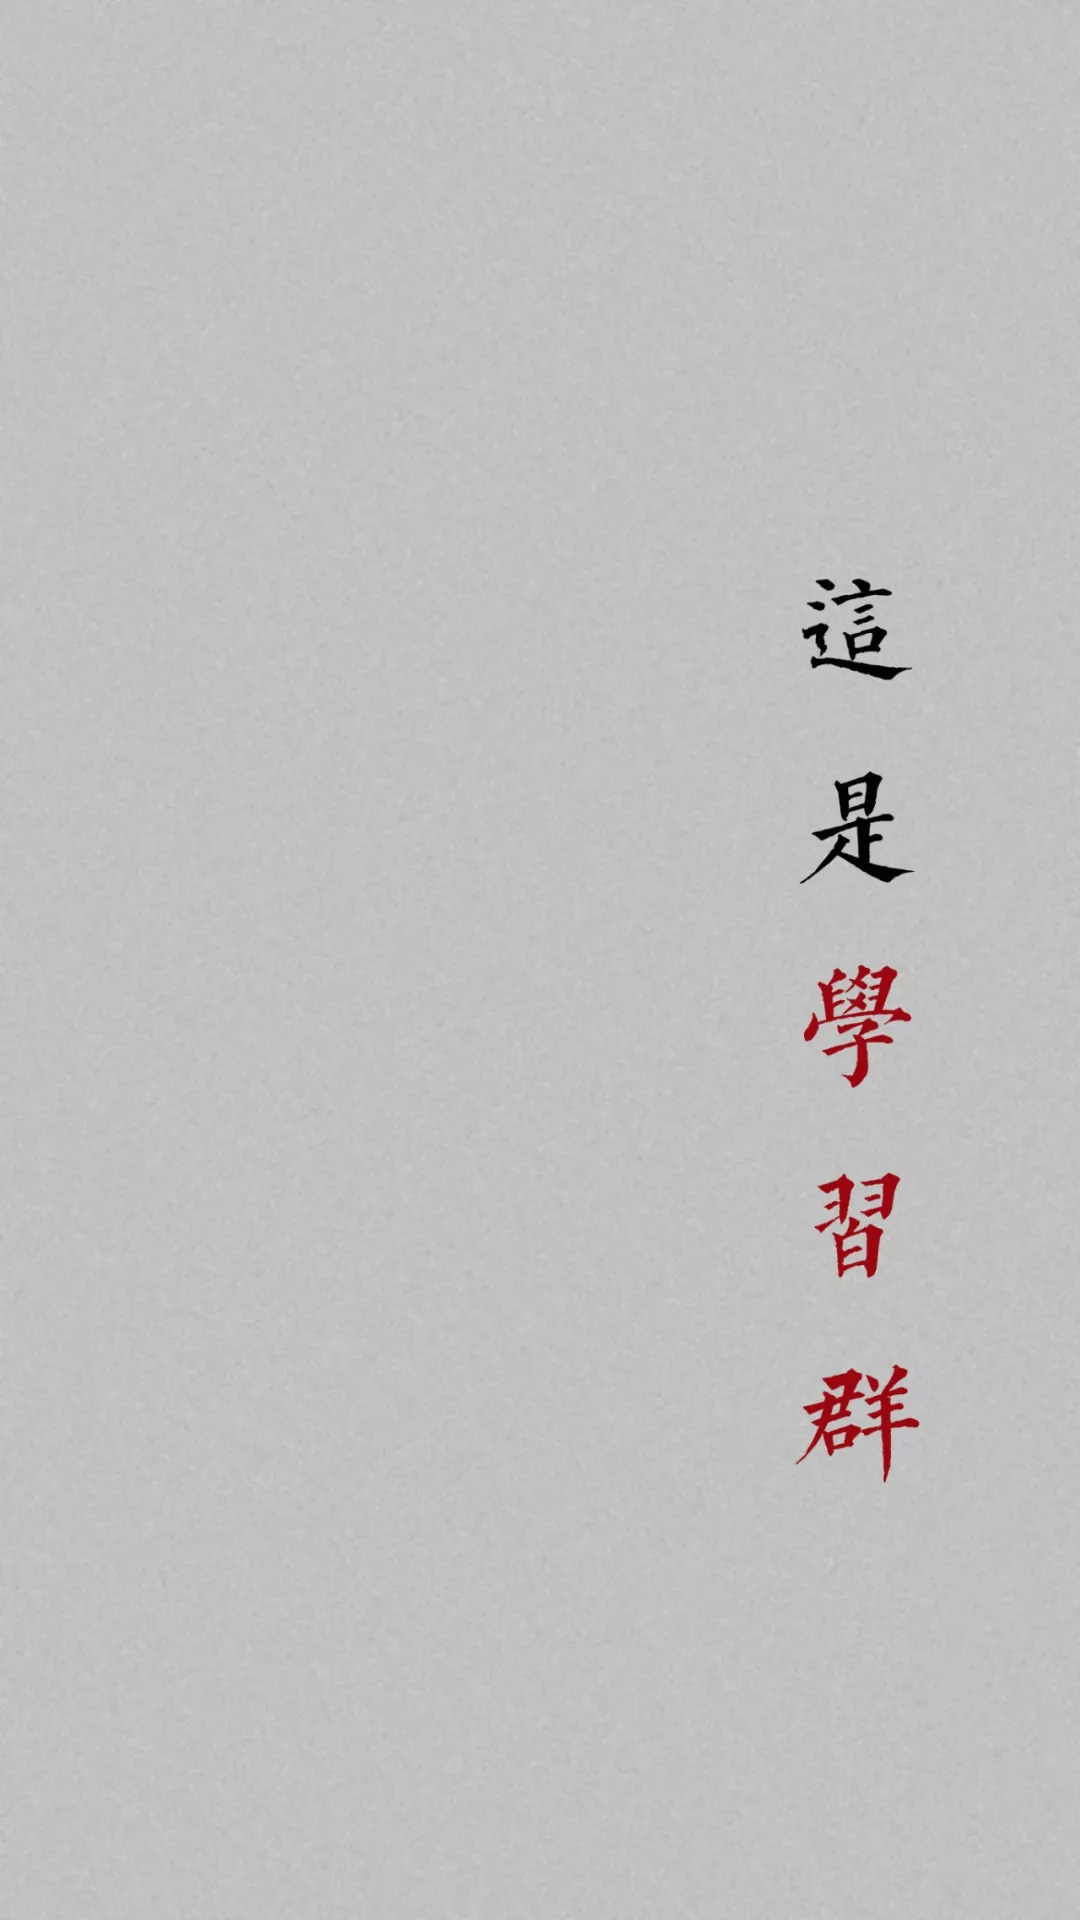 這是學習群